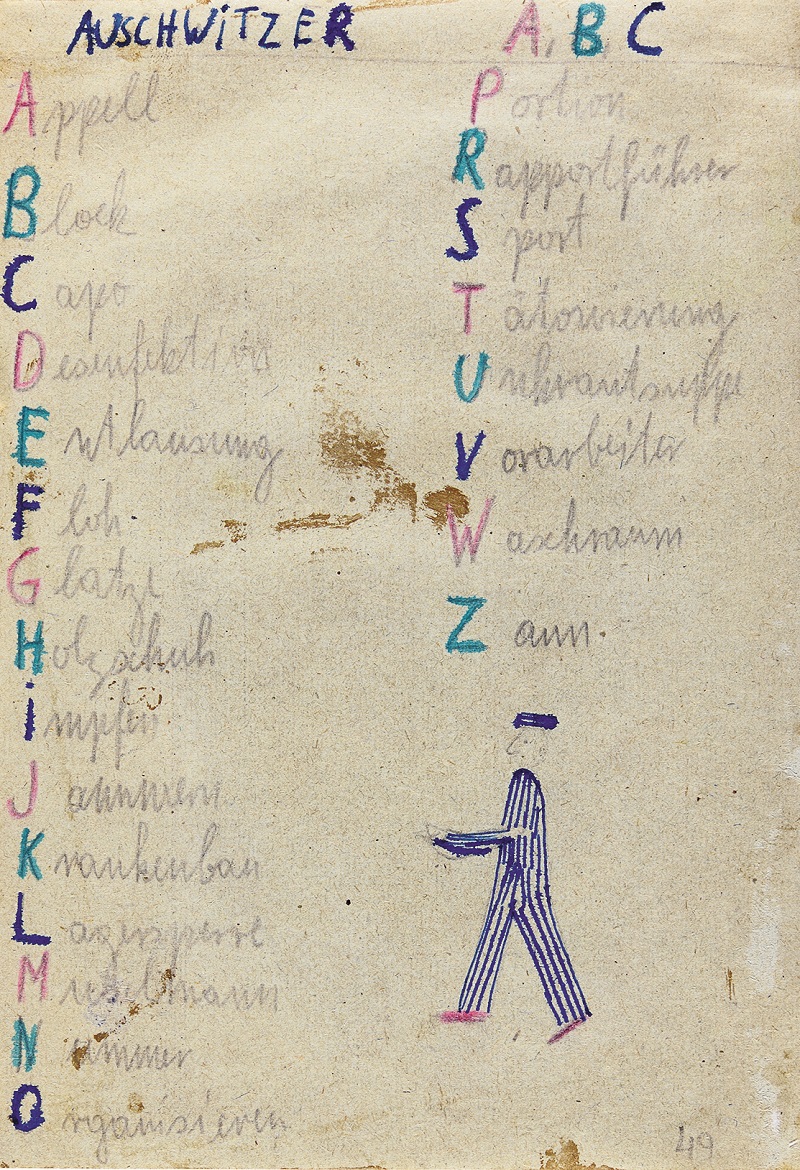 AUSCHWiTZER A, B, C
Appell
Block
Capo
Desinfektion
Entlausung
Floh
Glatze
Holzschuh
impfen
Jammern
Krankenbau
Lagersperre
Muselmann
Nummer
Organisieren
Portion
Rapportführer
Sport
Tätowierung
Unkrautsuppe
Vorarbeiter
Waschraum
Zaun.
49